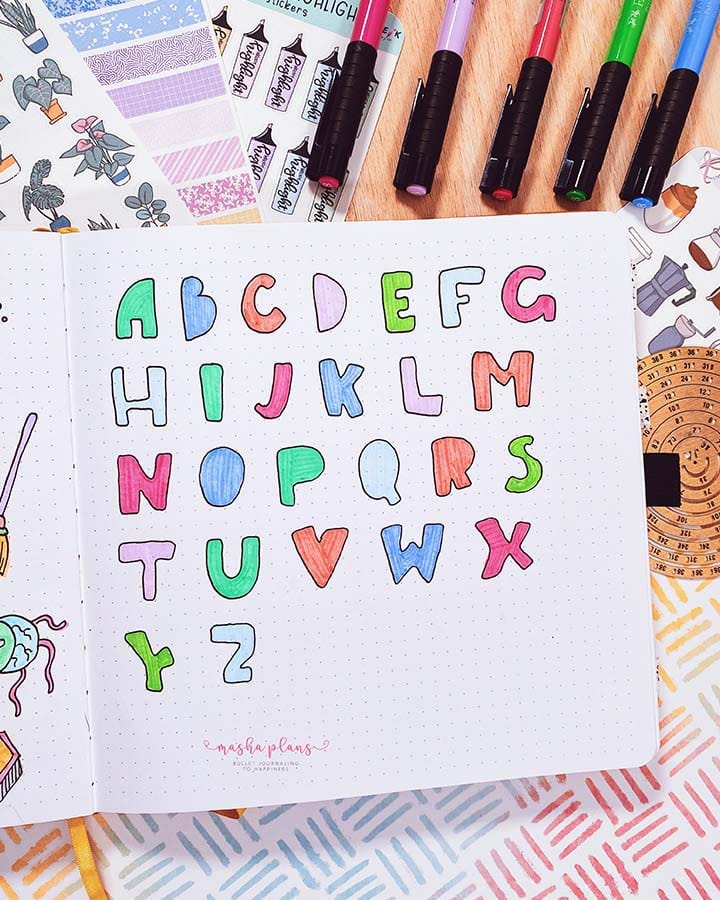 HIGHLIGHT
stickers
highlight
highlight
highlight
highlight
highlight
A B C D E F G
H I J K L M
N O P Q R S
T U V W X
Y Z
masha plans
BULLET JOURNALING
TO HAPPINESS